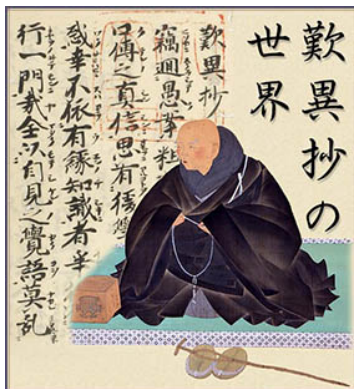 歎異抄の
世界
歎異抄
竊廻愚案粗
口傳之真信思有後
惑幸不依有縁知識者
行一門哉全以自見之覺語莫乱